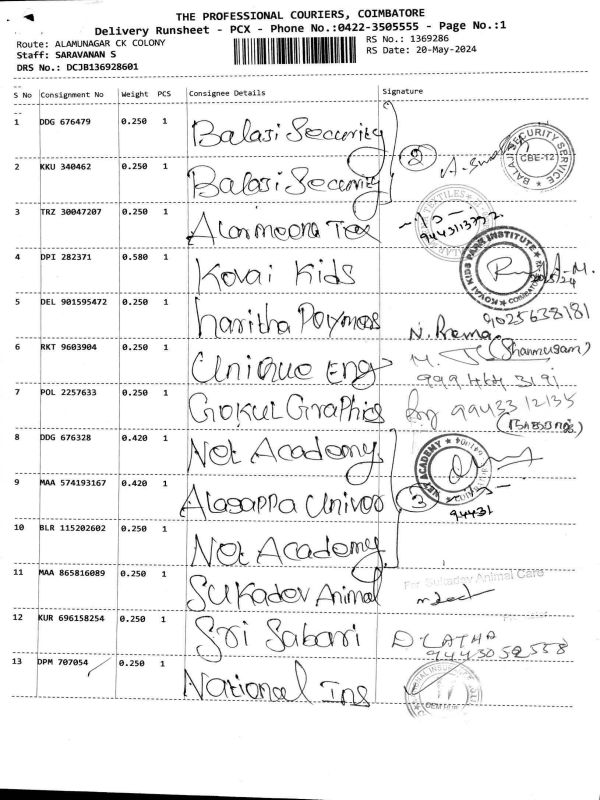 THE PROFESSIONAL COURIERS, COIMBATORE
Delivery Runsheet - PCX - Phone No.:0422-3505555 - Page No.:1
Route: ALAMUNAGAR CK COLONY
RS No.: 1369286
Staff: SARAVANAN S
RS Date: 20-May-2024
DRS No.: DCJB136928601
S No Consignment No Weight PCS Consignee Details Signature
1 DDG 676479 0.250 1 Balaji Security
BALAJI SECURITY SERVICE CBE-12
2 KKU 340462 0.250 1 Balaji Security
2
3 TRZ 30047207 0.250 1
TEXTILES
4 DPI 282371 0.580 1 Kovai Kids
KOVAI KIDS PARK INSTITUTE
5 DEL 901595472 0.250 1 haritha Polymers
N. Prema 9025638181
6 RKT 9603904 0.250 1 Unique Eng
(Shanmugam)
7 POL 2257633 0.250 1 Gokul Graphics
8 DDG 676328 0.420 1 Net Academy
ACADEMY
9 MAA 574193167 0.420 1 Alagappa Univer
3
94431
10 BLR 115202602 0.250 1 Net Academy
11 MAA 865816089 0.250 1 Sukadev Animal
For Sukadev Animal Care
12 KUR 696158254 0.250 1 Sri Sabari
D. LATHA
9443052558
13 DPM 707054 0.250 1 National Ins